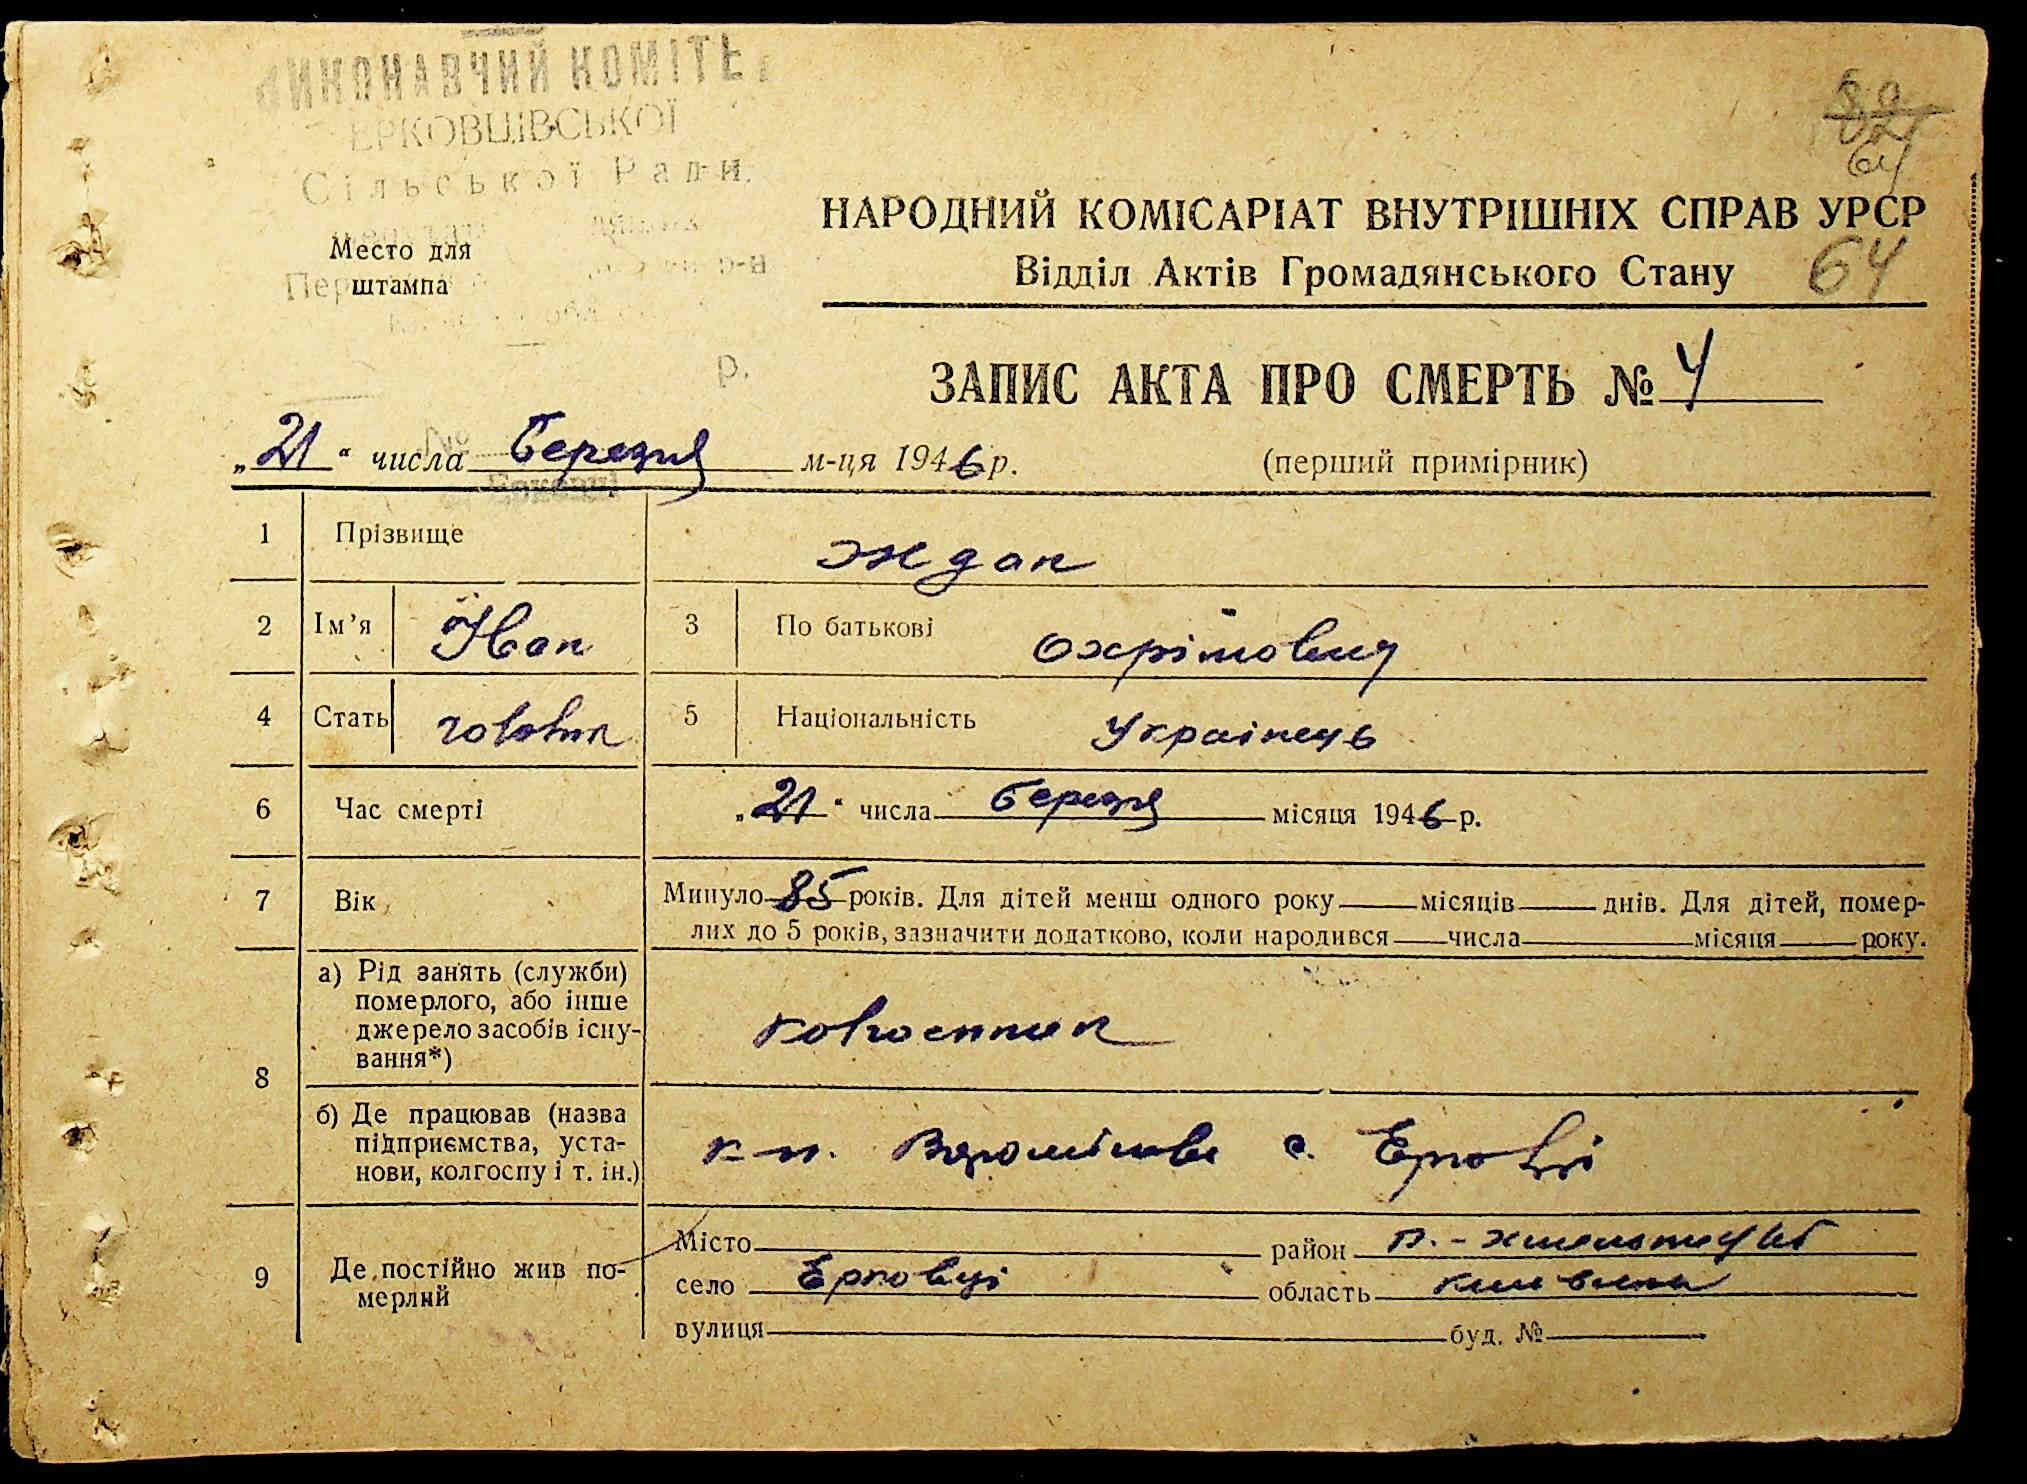 ВИКОНАВЧИЙ КОМІТЕТ
ЄРКОВЦІВСЬКОЇ
Сільської Ради
Место для
штампа
р.
64
64
НАРОДНИЙ КОМІСАРІАТ ВНУТРІШНІХ СПРАВ УРСР
Відділ Актів Громадянського Стану
ЗАПИС АКТА ПРО СМЕРТЬ № 4
„21“ числа березня м-ця 1946 р.
(перший примірник)
1 Прізвище Ждан
2 Ім’я Йван 3 По батькові Охрімович
4 Стать чоловік 5 Національність Українець
6 Час смерті „21“ числа березня місяця 1946 р.
7 Вік Минуло 85 років. Для дітей менш одного року місяців днів. Для дітей, помер-
лих до 5 років, зазначити додатково, коли народився числа місяця року.
8 а) Рід занять (служби)
померлого, або інше
джерело засобів існу-
вання*)
колгоспник
б) Де працював (назва
підприємства, уста-
нови, колгоспу і т. ін.)
к-п. с. Ерковці
9 Де постійно жив по-
мерлий
Місто район П.-Хмельницьк
село Ерковці область Київська
вулиця буд. №